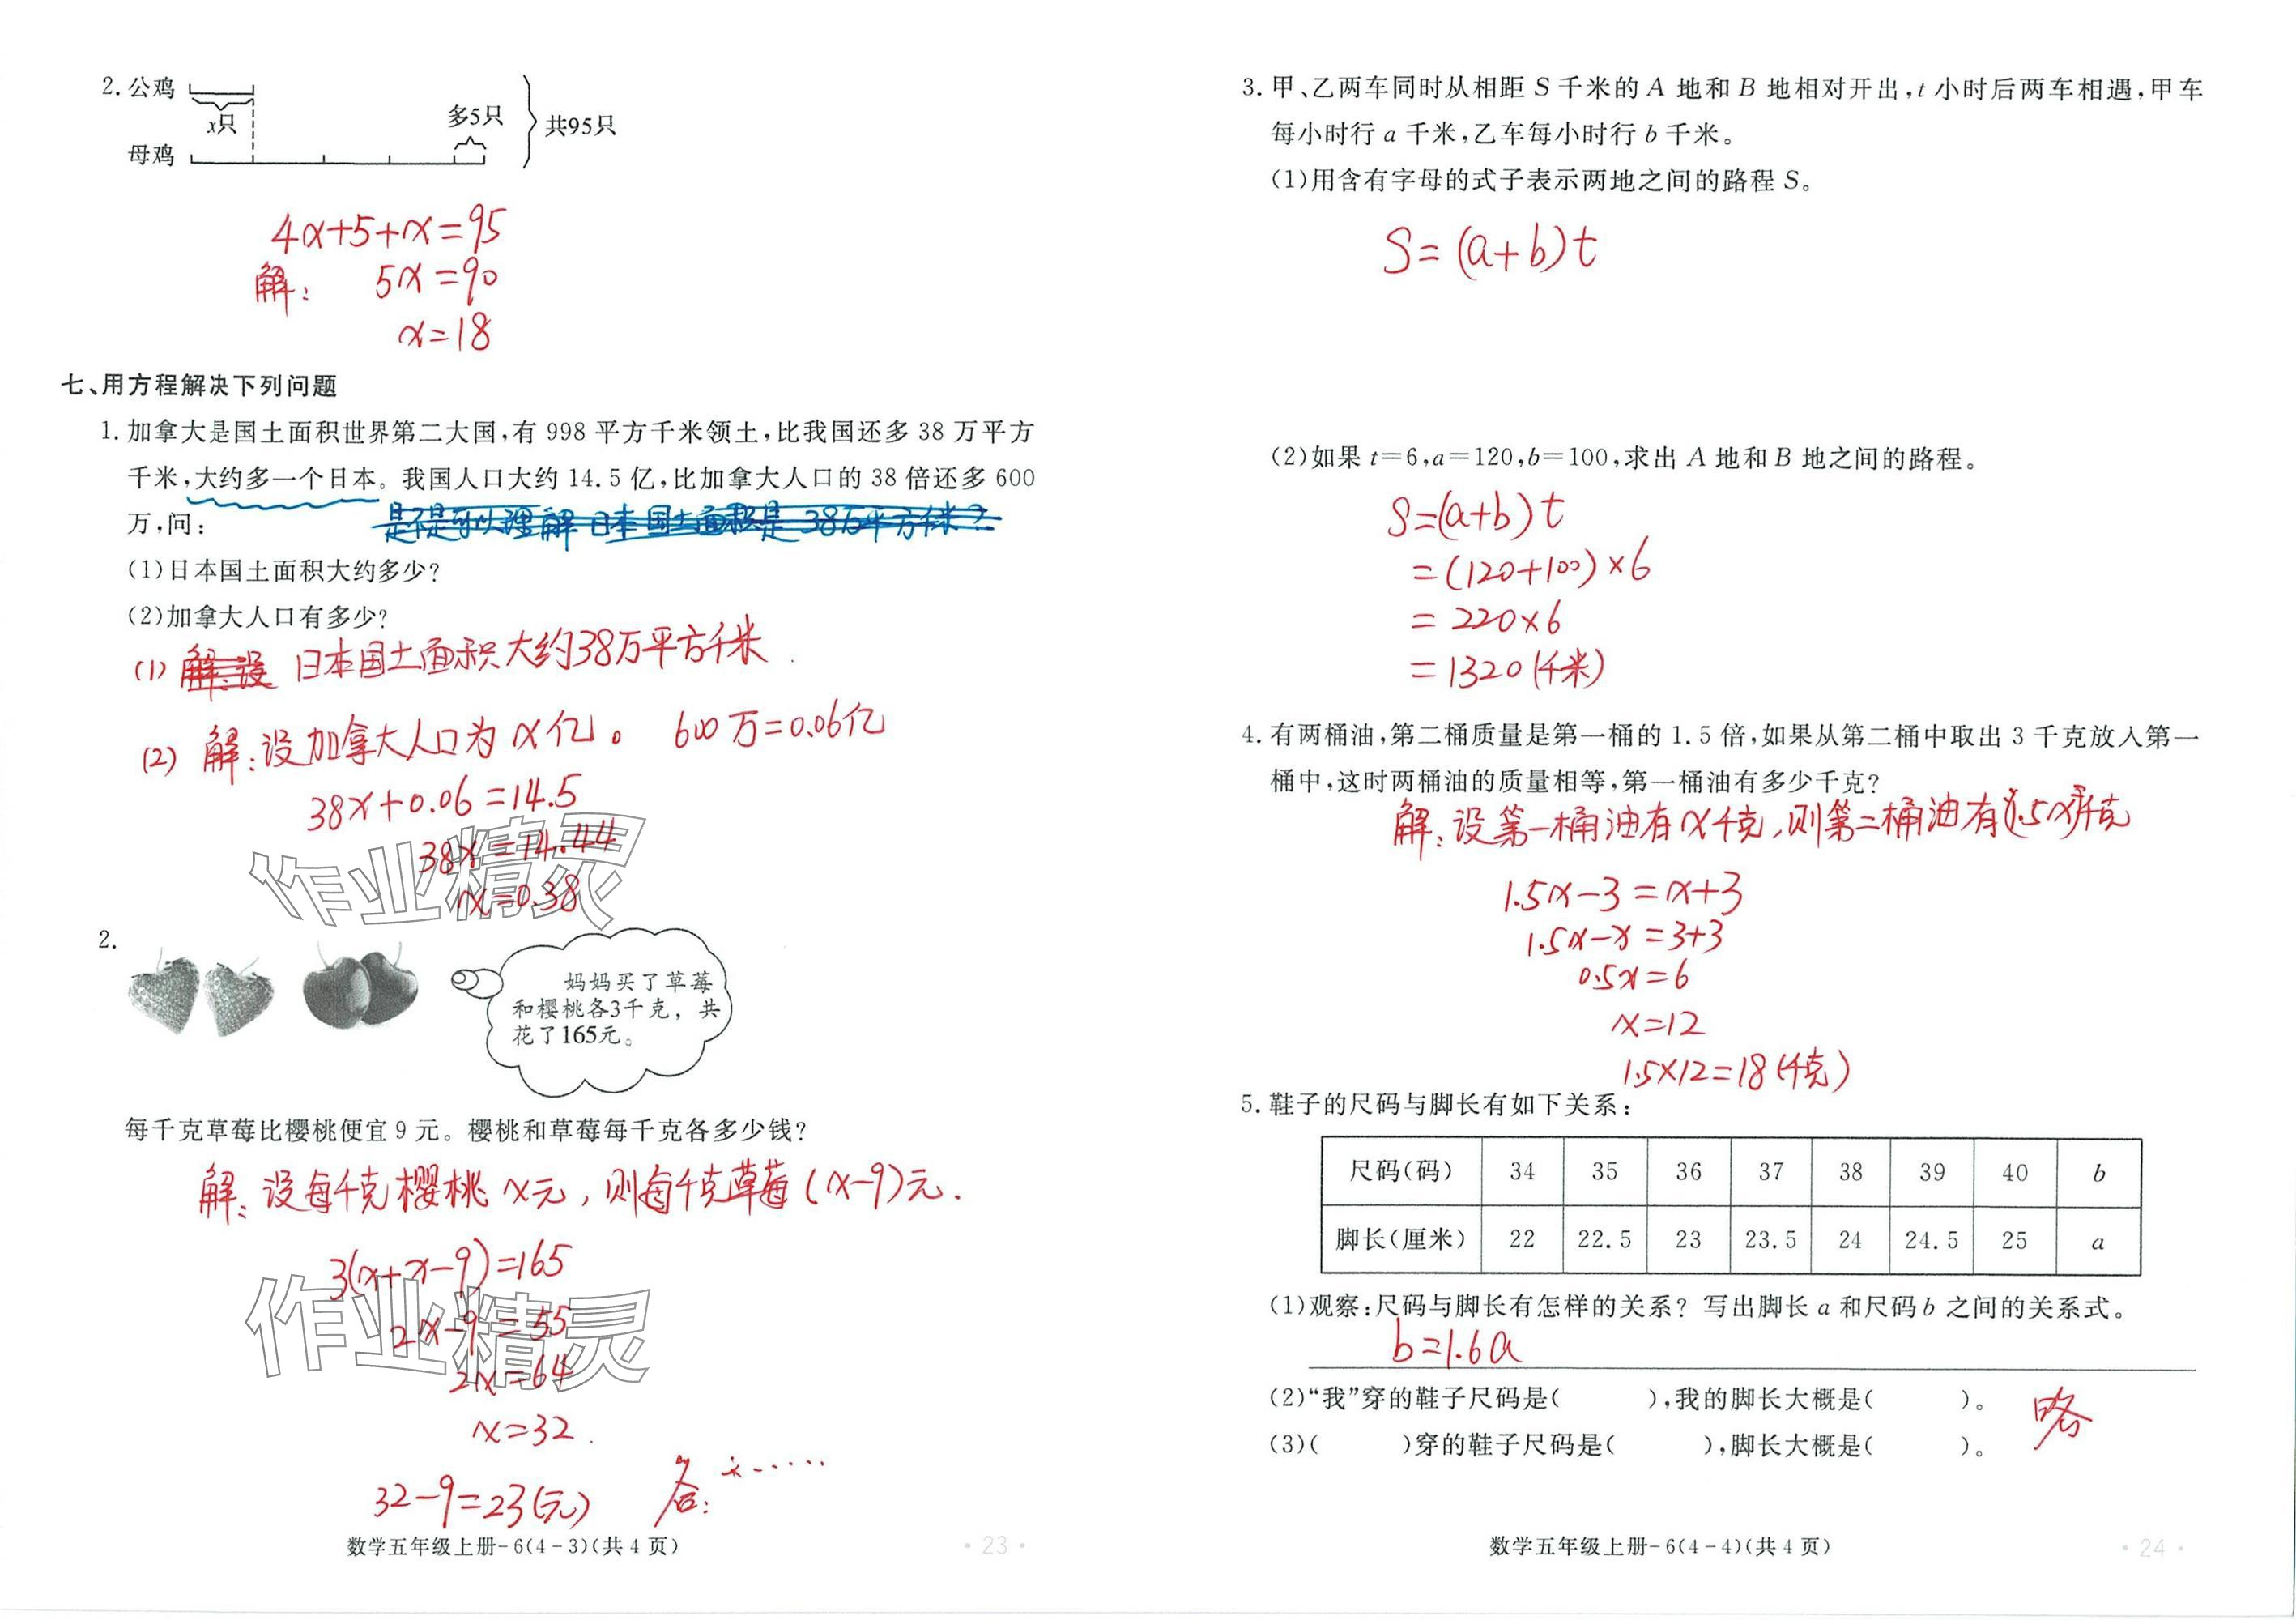 2. 公鸡
x只
多5只
共95只
母鸡
4x+5+x=95
解: 5x=90
x=18
七、用方程解决下列问题
1. 加拿大是国土面积世界第二大国,有 998 平方千米领土,比我国还多 38 万平方
千米,大约多一个日本。我国人口大约 14.5 亿,比加拿大人口的 38 倍还多 600
万,问:
是不是可以理解日本国土面积是38万平方千米?
(1)日本国土面积大约多少?
(2)加拿大人口有多少?
(1) 解:设 日本国土面积大约38万平方千米
(2) 解:设加拿大人口为x亿。 600万=0.06亿
38x+0.06=14.5
38x=14.44
x=0.38
作业精灵
2.
妈妈买了草莓
和樱桃各3千克,共
花了165元。
每千克草莓比樱桃便宜 9 元。樱桃和草莓每千克各多少钱?
解:设每千克樱桃x元,则每千克草莓(x-9)元.
3(x+x-9)=165
2x-9=55
2x=64
作业精灵
x=32
32-9=23(元)
答:……
数学五年级上册-6(4-3)(共 4 页)
· 23 ·
3. 甲、乙两车同时从相距 S 千米的 A 地和 B 地相对开出,t 小时后两车相遇,甲车
每小时行 a 千米,乙车每小时行 b 千米。
(1)用含有字母的式子表示两地之间的路程 S。
S=(a+b)t
(2)如果 t=6,a=120,b=100,求出 A 地和 B 地之间的路程。
S=(a+b)t
=(120+100)×6
=220×6
=1320(千米)
4. 有两桶油,第二桶质量是第一桶的 1.5 倍,如果从第二桶中取出 3 千克放入第一
桶中,这时两桶油的质量相等,第一桶油有多少千克?
解:设第一桶油有x千克,则第二桶油有1.5x千克
1.5x-3=x+3
1.5x-x=3+3
0.5x=6
x=12
1.5×12=18(千克)
5. 鞋子的尺码与脚长有如下关系:
尺码(码) 34 35 36 37 38 39 40 b
脚长(厘米) 22 22.5 23 23.5 24 24.5 25 a
(1)观察:尺码与脚长有怎样的关系? 写出脚长 a 和尺码 b 之间的关系式。
b=1.6a
(2)“我”穿的鞋子尺码是( ),我的脚长大概是( )。
略
(3)( )穿的鞋子尺码是( ),脚长大概是( )。
数学五年级上册-6(4-4)(共 4 页)
· 24 ·